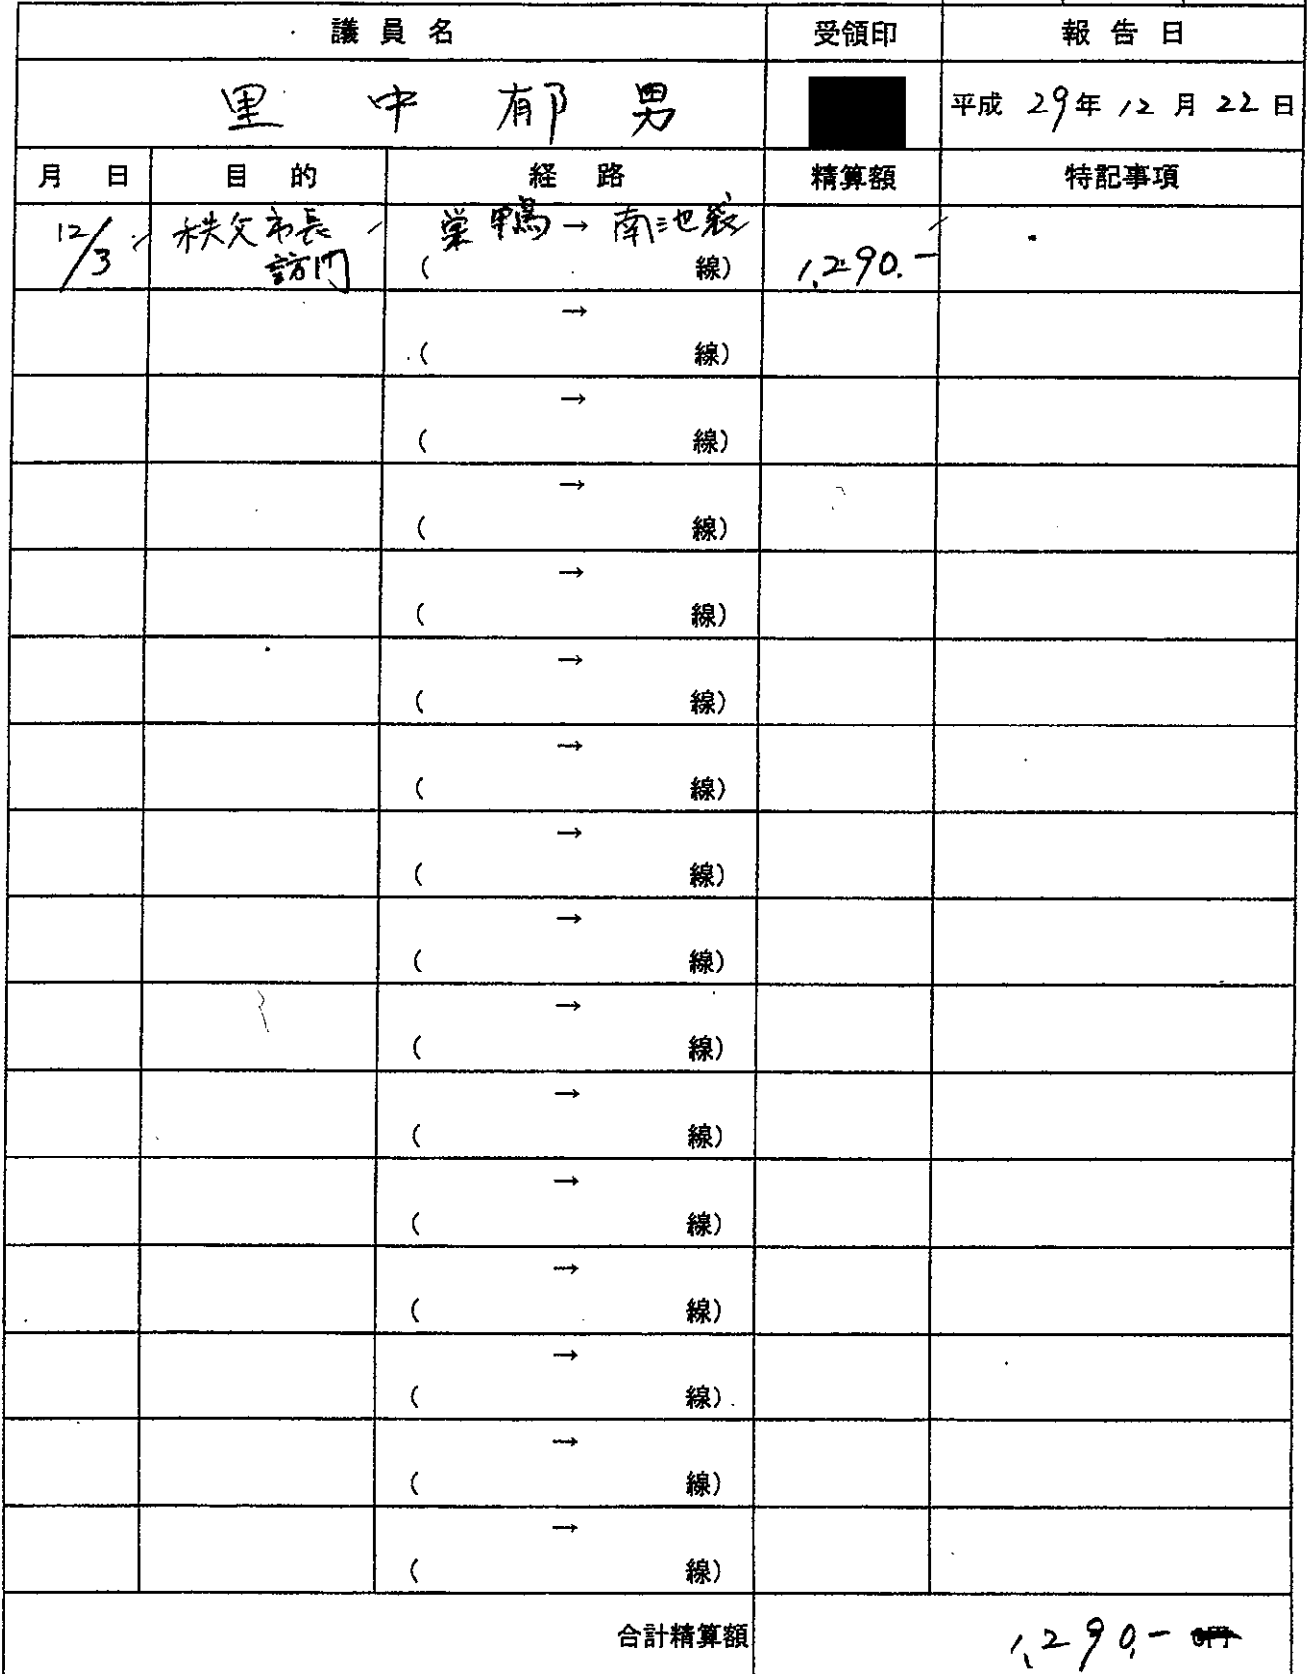 議員名 受領印 報告日
里中郁男 平成 29年 12月 22日
月日 目的 経路 精算額 特記事項
12/3 秩父市長 巣鴨→南池袋
訪問 ( 線) 1,290.-
→
( 線)
→
( 線)
→
( 線)
→
( 線)
→
( 線)
→
( 線)
→
( 線)
→
( 線)
→
( 線)
→
( 線)
→
( 線)
→
( 線)
→
( 線)
→
( 線)
→
( 線)
合計精算額 1,290,-